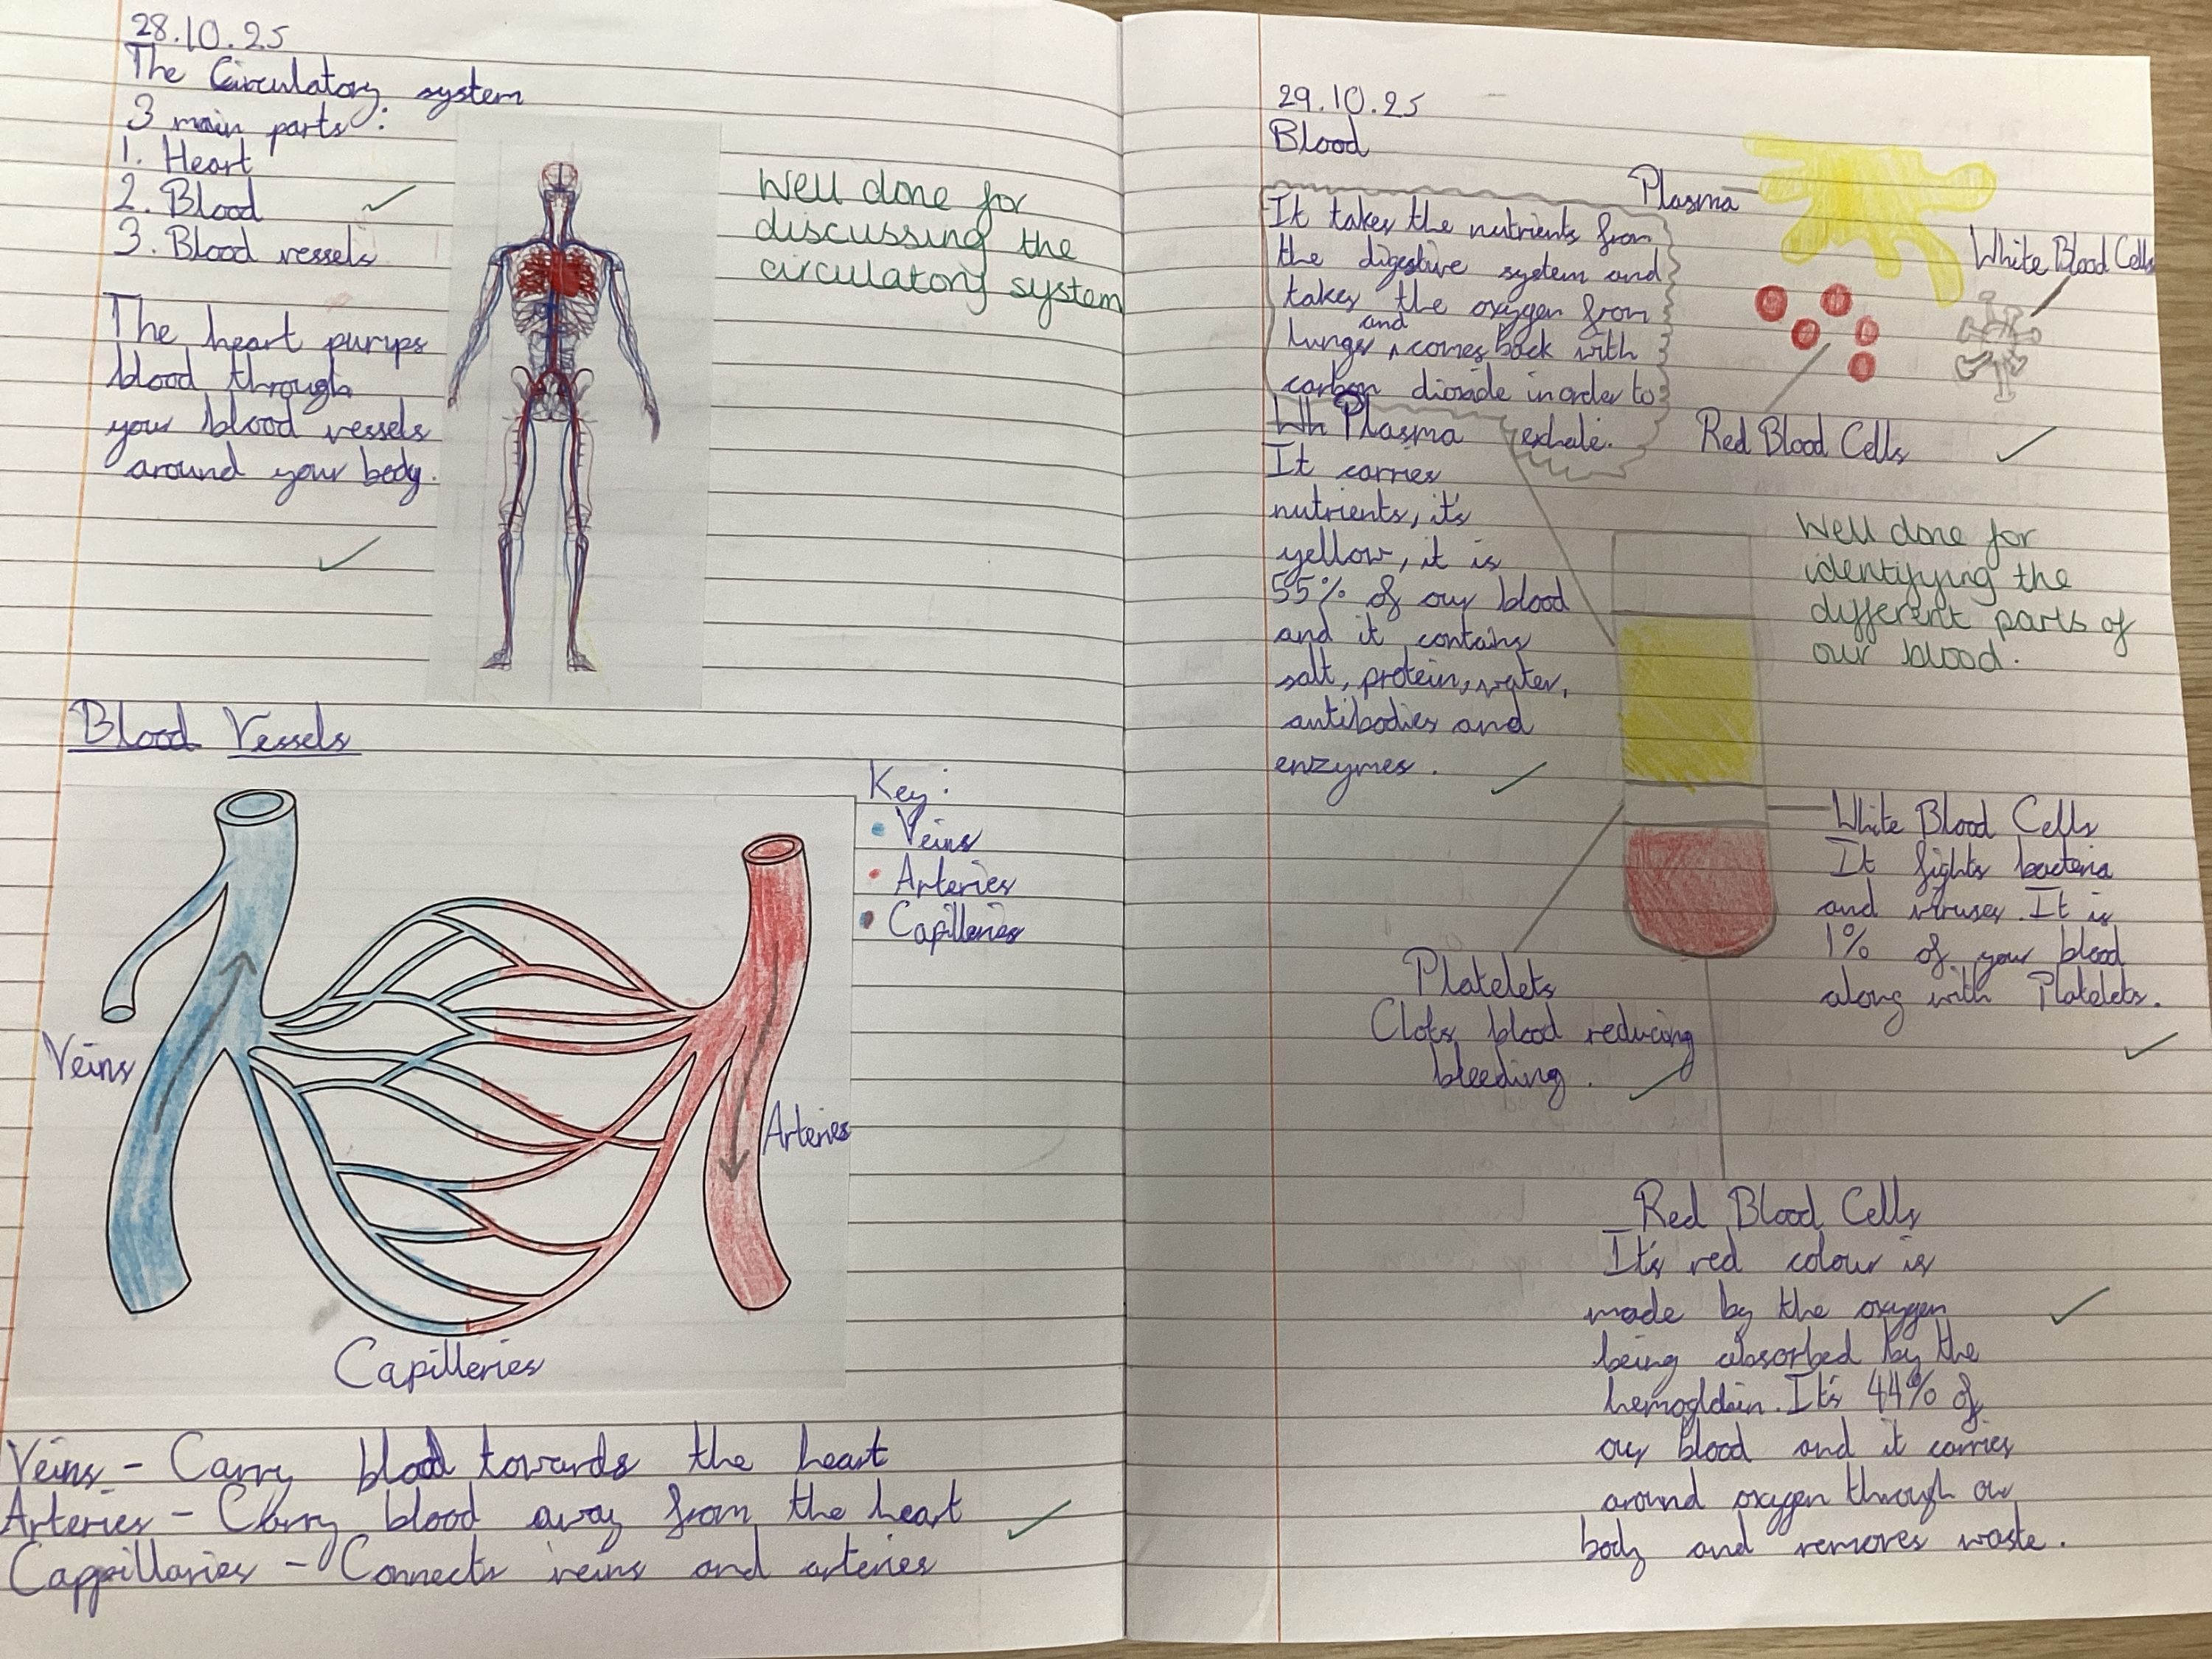 28.10.25
The Circulatory system
3 main parts :
1. Heart
2. Blood
3. Blood vessels
The heart pumps
blood through
your blood vessels
around your body.
Well done for
discussing the
circulatory system
Blood Vessels
Key :
Veins
Arteries
Capilleries
Veins
Arteries
Capilleries
Veins - Carry blood towards the heart
Arteries - Carry blood away from the heart
Cappillaries - Connects veins and arteries
29.10.25
Blood
It takes the nutrients from
the digestive system and
takes the oxygen from
lungs and comes back with
carbon dioxide in order to
exhale.
Plasma
White Blood Cells
Red Blood Cells
Wh Plasma
It carries
nutrients, it's
yellow, it is
55% of our blood
and it contains
salt, protein, water,
antibodies and
enzymes.
Well done for
identifying the
different parts of
our blood.
White Blood Cells
It fights bacteria
and viruses. It is
1% of your blood
along with Platelets.
Platelets
Clots blood reducing
bleeding.
Red Blood Cells
It's red colour is
made by the oxygen
being absorbed by the
hemogldoin. It's 44% of
our blood and it carries
around oxygen through our
body and removes waste.